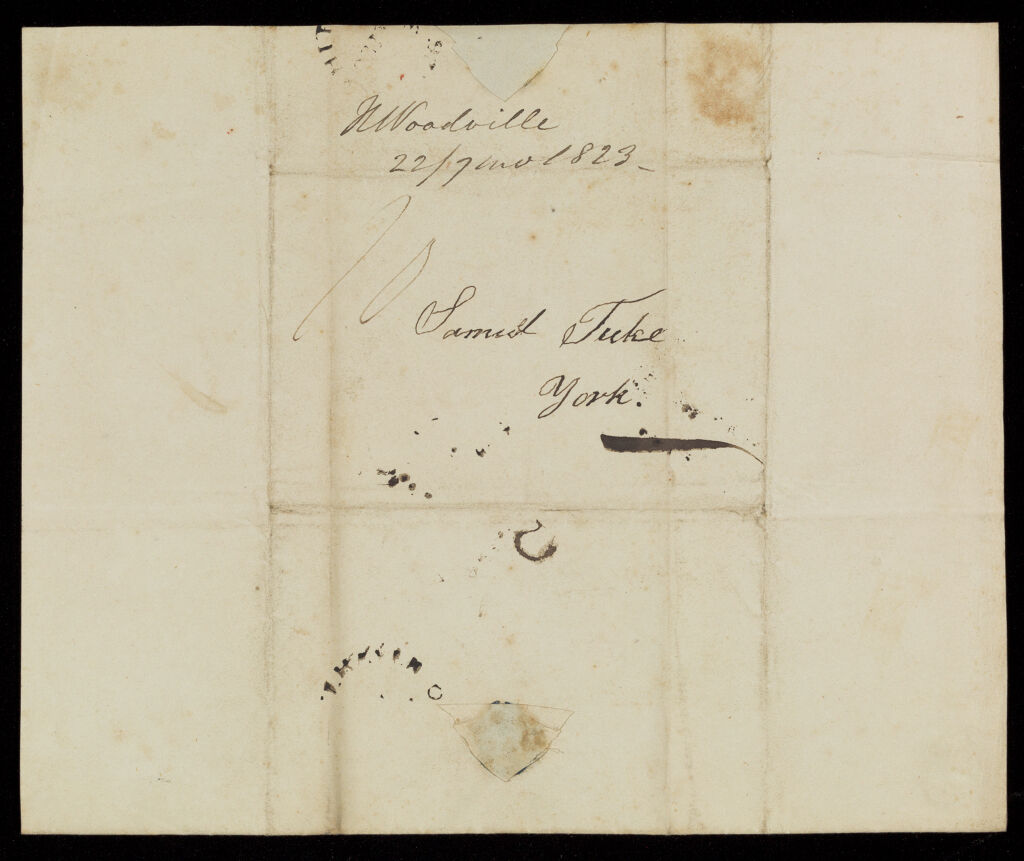 Woodville
22/7mo 1823_
Samuel Tuke
York.